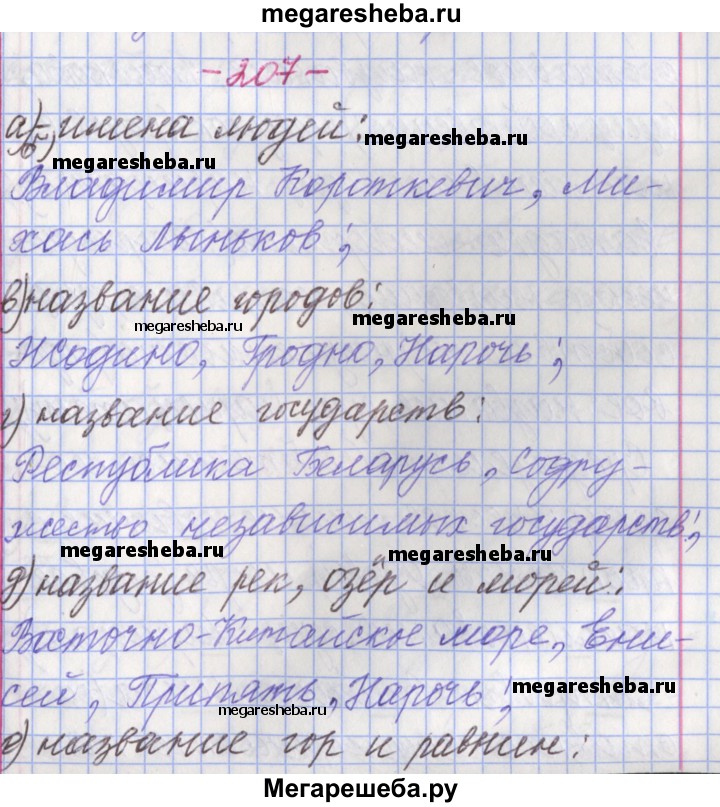 megaresheba.ru
-207-
а)- имена людей:
б)
megaresheba.ru
megaresheba.ru
Владимир Короткевич, Ми-
хась Лыньков;
в) название городов:
megaresheba.ru
megaresheba.ru
Жодино, Гродно, Нарочь;
г) название государств:
Республика Беларусь, Содру-
жество независимых государств;
megaresheba.ru
megaresheba.ru
д) название рек, озёр и морей:
Восточно-Китайское море, Ени-
сей, Припять, Нарочь;
megaresheba.ru
megaresheba.ru
е) название гор и равнин:
Мегарешеба.ру